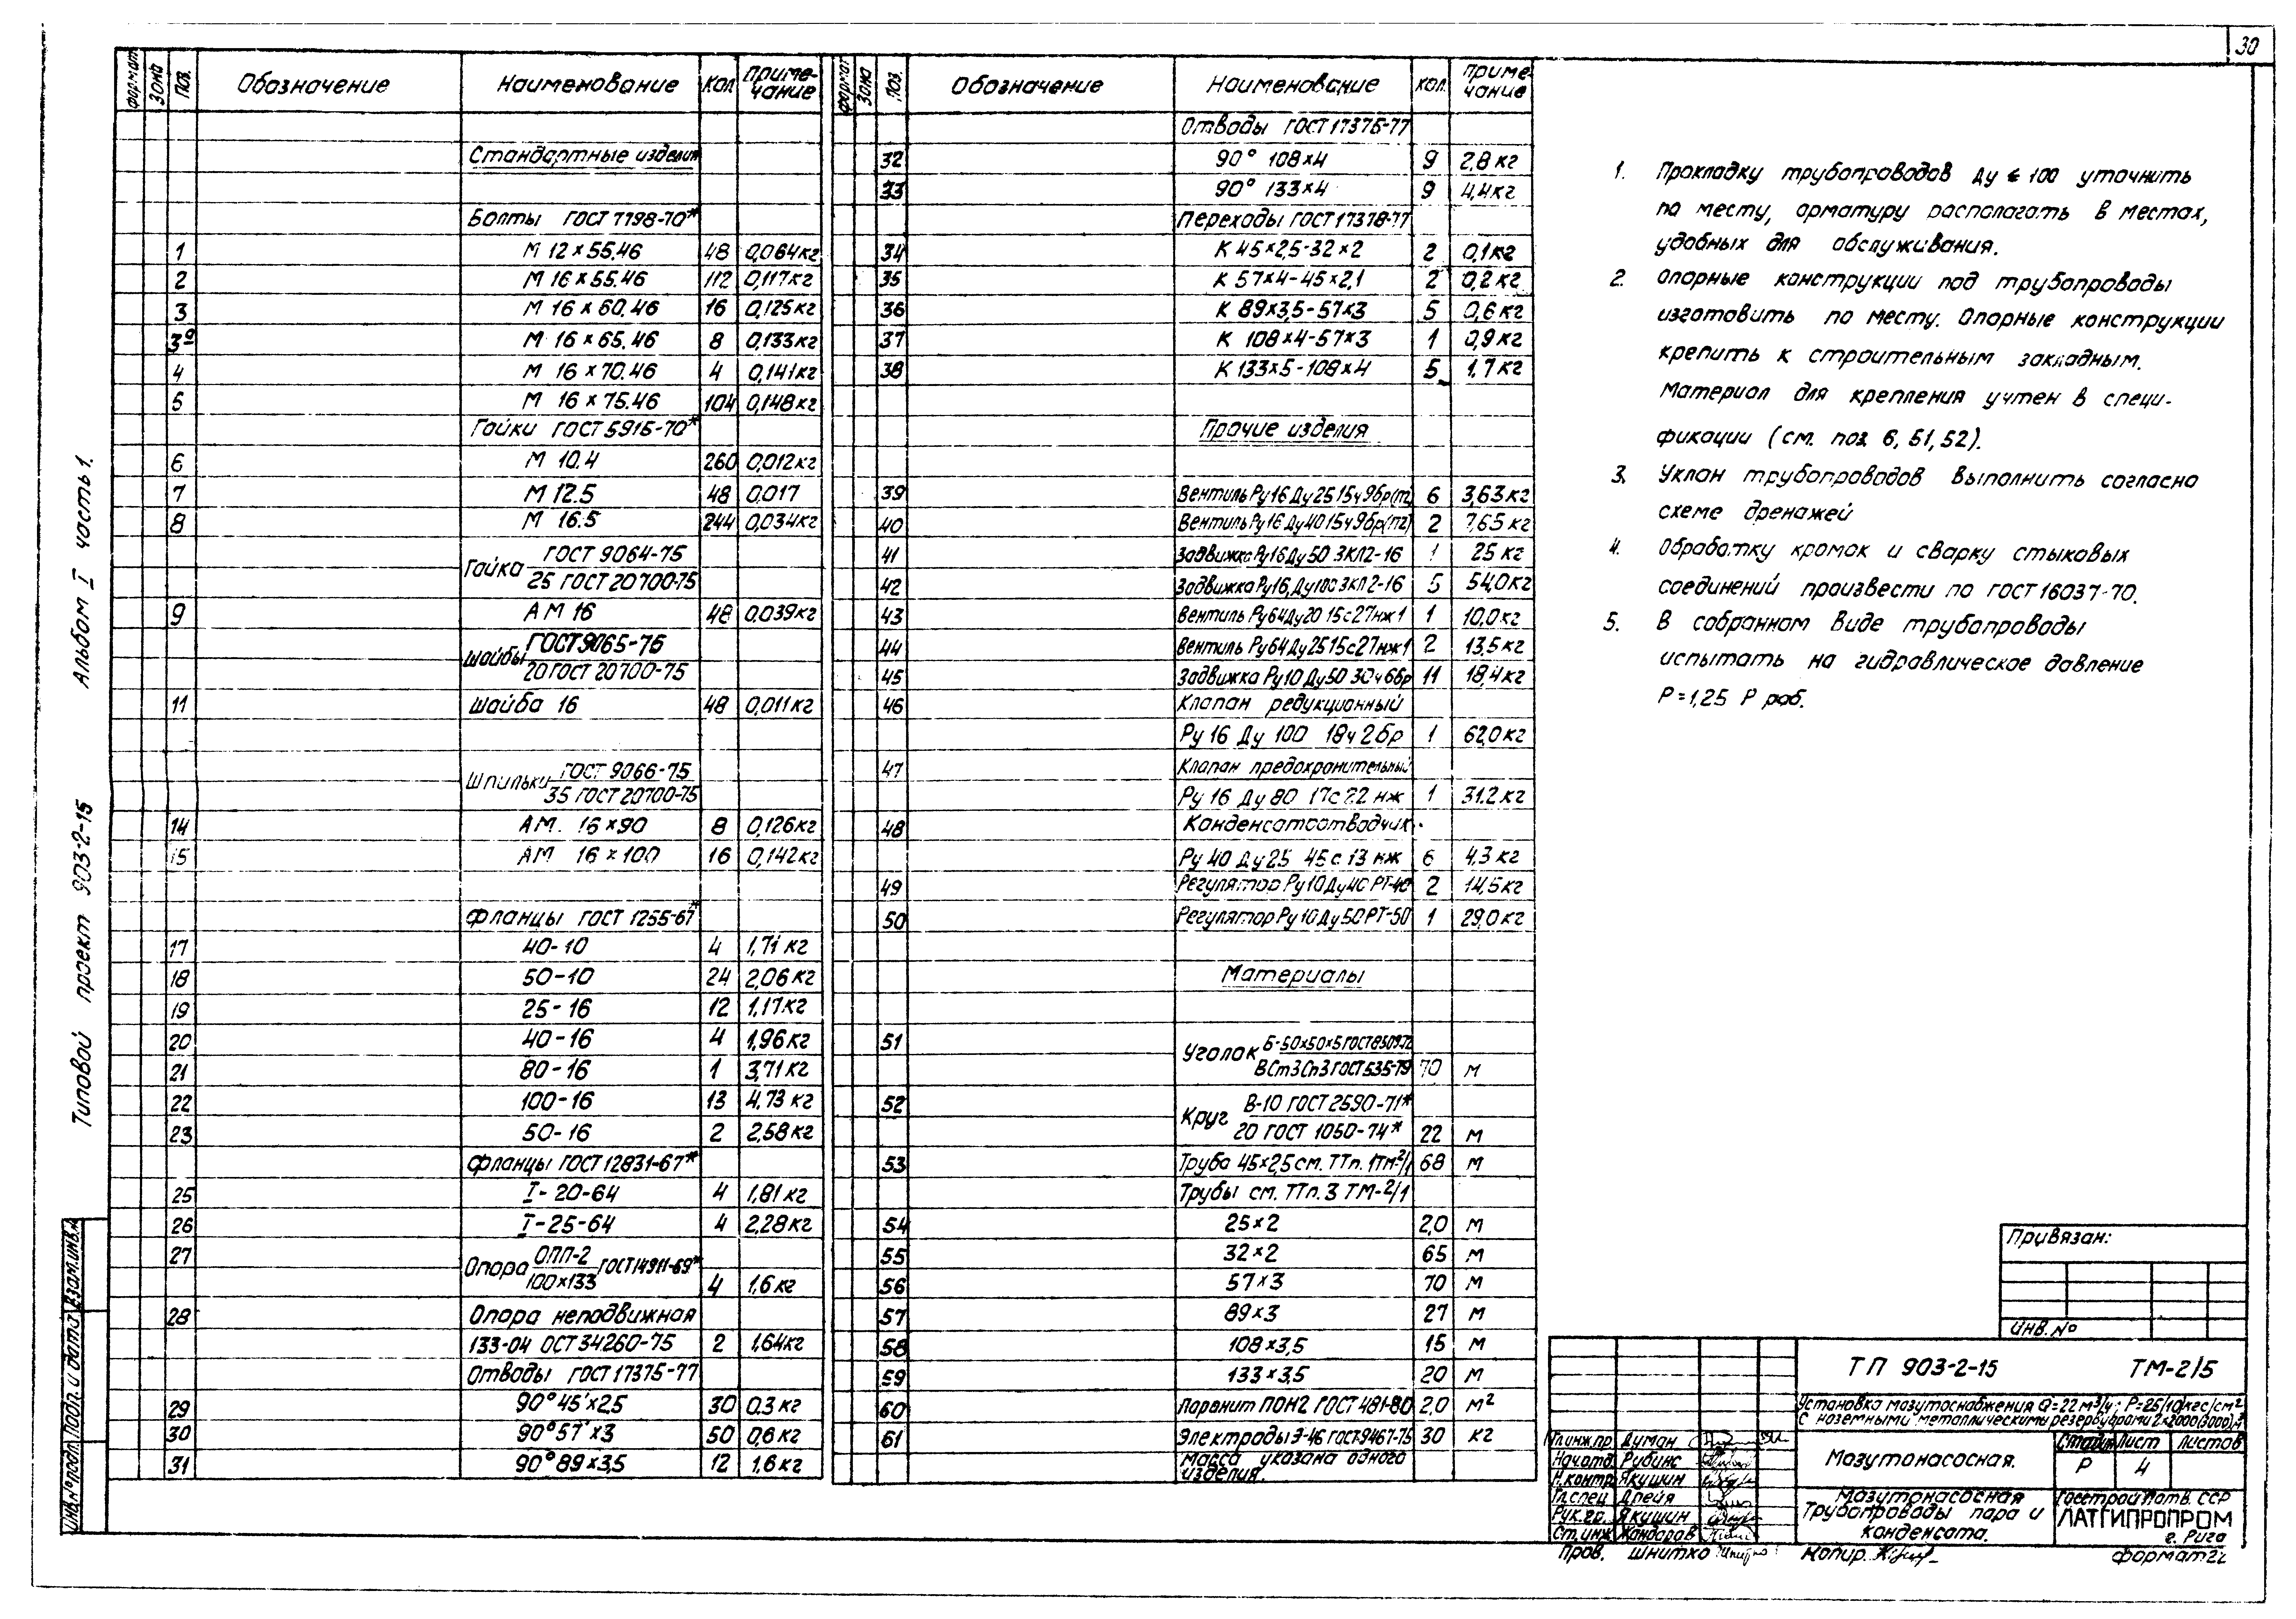 30
формат Зона Поз. Обозначение Наименование Кол Приме-чание
Стандартные изделия
Болты ГОСТ 7798-70*
1 М 12×55.46 48 0,064кг
2 М 16×55.46 112 0,117кг
3 М 16×60.46 16 0,125кг
3а М 16×65.46 8 0,133кг
4 М 16×70.46 4 0,141кг
5 М 16×75.46 104 0,148кг
Гайки ГОСТ 5915-70*
6 М 10.4 260 0,012кг
7 М 12.5 48 0,017
8 М 16.5 244 0,034кг
Гайка ГОСТ 9064-75
25 ГОСТ 20700-75
9 АМ 16 48 0,039кг
Шайбы ГОСТ 9065-75
20 ГОСТ 20700-75
11 Шайба 16 48 0,011кг
Шпильки ГОСТ 9066-75
35 ГОСТ 20700-75
14 АМ. 16×90 8 0,126кг
15 АМ 16×100 16 0,142кг
Фланцы ГОСТ 1255-67*
17 40-10 4 1,71 кг
18 50-10 24 2,06 кг
19 25-16 12 1,17кг
20 40-16 4 1,96кг
21 80-16 1 3,71 кг
22 100-16 13 4,73 кг
23 50-16 2 2,58кг
Фланцы ГОСТ 12831-67*
25 I-20-64 4 1,81 кг
26 I-25-64 4 2,28кг
27 Опора ОПП-2 ГОСТ 14911-69*
100×133 4 1,6кг
28 Опора неподвижная
133-04 ОСТ 34260-75 2 1,64кг
Отводы ГОСТ 17375-77
29 90° 45×2,5 30 0,3 кг
30 90° 57×3 50 0,6 кг
31 90° 89×3,5 12 1,6кг
формат Зона Поз. Обозначение Наименование кол. Приме-чание
Отводы ГОСТ 17375-77
32 90° 108×4 9 2,8кг
33 90° 133×4 9 4,4кг
Переходы ГОСТ 17378-77
34 К 45×2,5-32×2 2 0,1кг
35 К 57×4-45×2,1 2 0,2кг
36 К 89×3,5-57×3 5 0,6кг
37 К 108×4-57×3 1 0,9кг
38 К 133×5-108×4 5 1,7кг
Прочие изделия
39 Вентиль Ру16 Ду 25 15ч 9бр(п2) 6 3,63кг
40 Вентиль Ру16 Ду40 15ч 9бр(п2) 2 7,65 кг
41 Задвижка Ру16 Ду 50 ЗКЛ2-16 1 25 кг
42 Задвижка Ру16, Ду100 ЗКЛ 2-16 5 54,0кг
43 Вентиль Ру64 Ду20 15с27нж1 1 10,0кг
44 Вентиль Ру64 Ду25 15с27нж1 2 13,5кг
45 Задвижка Ру10 Ду50 30ч6бр 11 18,4кг
46 Клапан редукционный
Ру 16 Ду 100 18ч 2бр 1 62,0кг
47 Клапан предохранительный
Ру 16 Ду 80 17с 22 нж 1 31.2кг
48 Конденсатоотводчик
Ру 40 Ду 25 45с 13 нж 6 4,3 кг
49 Регулятор Ру10 Ду40 РТ-40 2 14,5кг
50 Регулятор Ру 10 Ду50 РТ-50 1 29,0кг
Материалы
51 Уголок Б-50×50×5 ГОСТ 8509-72
ВСт3Сп3 ГОСТ 535-79 70 м
52 Круг В-10 ГОСТ 2590-71*
20 ГОСТ 1050-74* 22 м
53 Труба 45×2,5 см. ТТп. 1 68 м
Трубы см. ТТп. 3 ТМ-2/1
54 25×2 2,0 м
55 32×2 65 м
56 57×3 70 м
57 89×3 27 м
58 108×3,5 15 м
59 133×3,5 20 м
60 Паранит ПОН2 ГОСТ 481-80 2,0 м²
61 Электроды Э-46 ГОСТ 9467-75 30 кг
Масса указана одного
изделия.
1. Прокладку трубопроводов Ду ≤ 100 уточнить
по месту, арматуру располагать в местах,
удобных для обслуживания.
2. Опорные конструкции под трубопроводы
изготовить по месту. Опорные конструкции
крепить к строительным закладным.
Материал для крепления учтен в специ-
фикации (см. поз. 6, 51, 52).
3. Уклон трубопроводов выполнить согласно
схеме дренажей
4. Обработку кромок и сварку стыковых
соединений произвести по ГОСТ 16037-70.
5. В собранном виде трубопроводы
испытать на гидравлическое давление
Р=1,25 Р раб.
Типовой проект 903-2-15 Альбом I часть 1.
Инв.№подл. Подп. и дата Взам.инв.№
Привязан:
Инв. №
ТП 903-2-15 ТМ-2/5
Установка мазутоснабжения Q=22 м³/ч; Р=25(10)кгс/см²
с наземными металлическими резервуарами 2×2000(3000)м³
Гл.инж.пр. Думан
Нач.отд. Рубинс
Н.контр. Якушин
Гл.спец Дрейя
Рук.гр. Якушин
Ст.инж. Кандаров
Пров. Шнитко
Мазутонасосная.
Стадия Лист Листов
Р 4
Мазутонасосная
Трубопроводы пара и
конденсата.
Госстрой Латв. ССР
ЛАТГИПРОПРОМ
г. Рига
Копир.
Формат 22